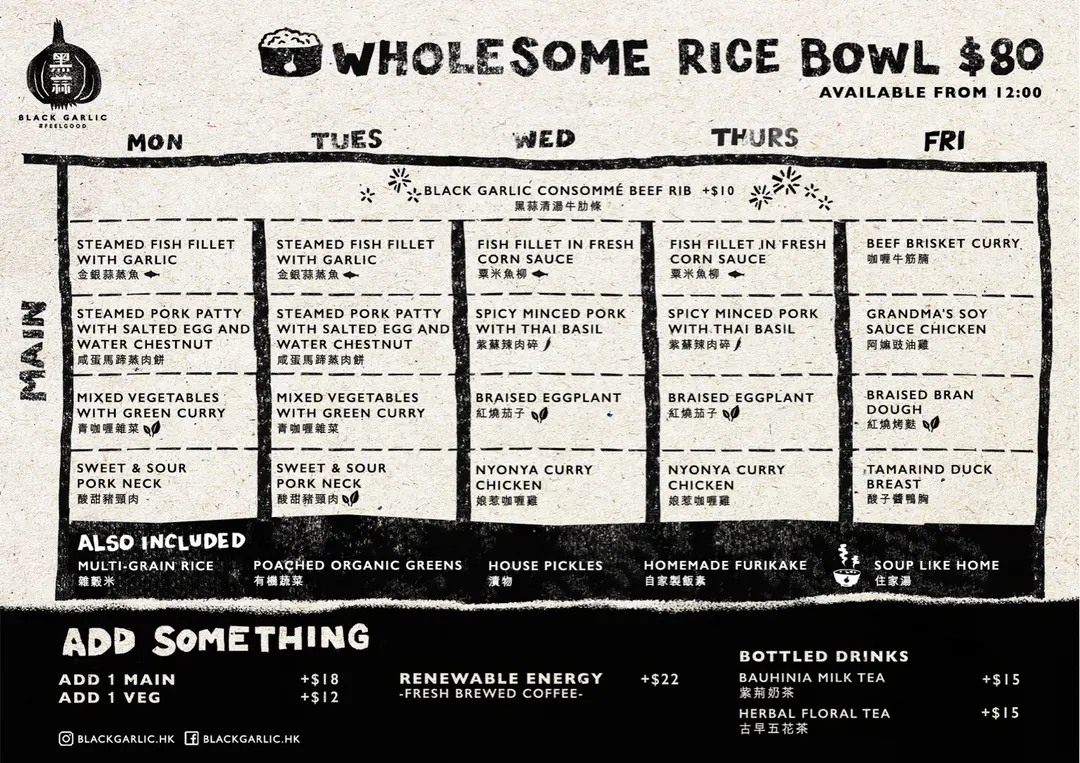 黑蒜
BLACK GARLIC
#FEELGOOD
WHOLESOME RICE BOWL $80
AVAILABLE FROM 12:00
MON
TUES
WED
THURS
FRI
MAIN
BLACK GARLIC CONSOMMÉ BEEF RIB +$10
黑蒜清湯牛肋條
STEAMED FISH FILLET
WITH GARLIC
金銀蒜蒸魚
STEAMED FISH FILLET
WITH GARLIC
金銀蒜蒸魚
FISH FILLET IN FRESH
CORN SAUCE
粟米魚柳
FISH FILLET IN FRESH
CORN SAUCE
粟米魚柳
BEEF BRISKET CURRY
咖喱牛筋腩
STEAMED PORK PATTY
WITH SALTED EGG AND
WATER CHESTNUT
咸蛋馬蹄蒸肉餅
STEAMED PORK PATTY
WITH SALTED EGG AND
WATER CHESTNUT
咸蛋馬蹄蒸肉餅
SPICY MINCED PORK
WITH THAI BASIL
紫蘇辣肉碎
SPICY MINCED PORK
WITH THAI BASIL
紫蘇辣肉碎
GRANDMA'S SOY
SAUCE CHICKEN
阿嫲豉油雞
MIXED VEGETABLES
WITH GREEN CURRY
青咖喱雜菜
MIXED VEGETABLES
WITH GREEN CURRY
青咖喱雜菜
BRAISED EGGPLANT
紅燒茄子
BRAISED EGGPLANT
紅燒茄子
BRAISED BRAN
DOUGH
紅燒烤麩
SWEET & SOUR
PORK NECK
酸甜豬頸肉
SWEET & SOUR
PORK NECK
酸甜豬頸肉
NYONYA CURRY
CHICKEN
娘惹咖喱雞
NYONYA CURRY
CHICKEN
娘惹咖喱雞
TAMARIND DUCK
BREAST
酸子醬鴨胸
ALSO INCLUDED
MULTI-GRAIN RICE
雜穀米
POACHED ORGANIC GREENS
有機蔬菜
HOUSE PICKLES
漬物
HOMEMADE FURIKAKE
自家製飯素
SOUP LIKE HOME
住家湯
ADD SOMETHING
ADD 1 MAIN +$18
ADD 1 VEG +$12
RENEWABLE ENERGY +$22
-FRESH BREWED COFFEE-
BOTTLED DRINKS
BAUHINIA MILK TEA +$15
紫荊奶茶
HERBAL FLORAL TEA +$15
古早五花茶
BLACKGARLIC.HK BLACKGARLIC.HK